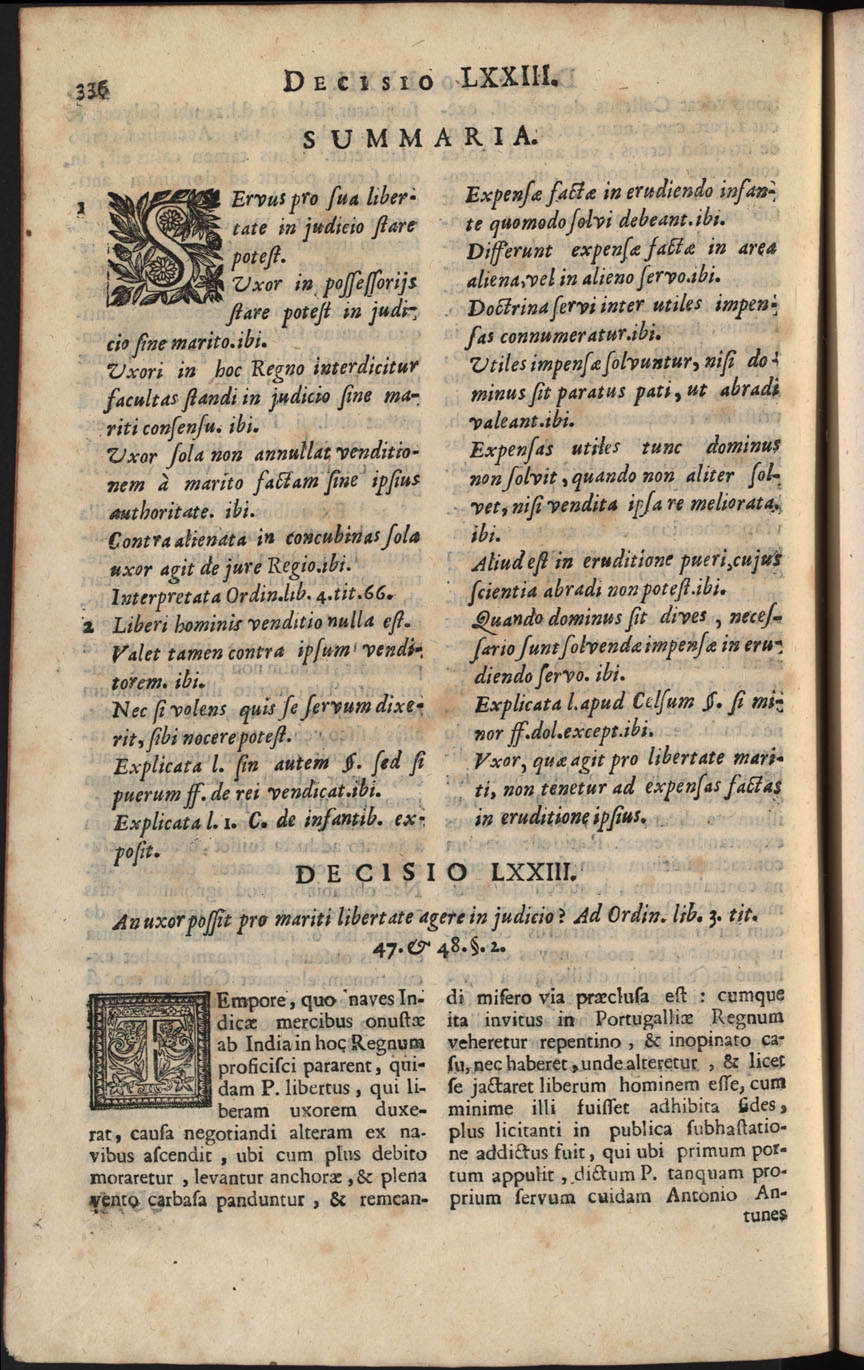 336
DECISIO LXXIII.
SUMMARIA.
1 SErvus pro ſua liber-
tate in judicio ſtare
poteſt.
Uxor in poſſeſſorijs
ſtare poteſt in judi-
cio ſine marito.ibi.
Uxori in hoc Regno interdicitur
facultas ſtandi in judicio ſine ma-
riti conſenſu. ibi.
Uxor ſola non annullat venditio-
nem à marito factam ſine ipſius
authoritate. ibi.
Contra alienata in concubinas ſola
uxor agit de jure Regio.ibi.
Interpretata Ordin.lib. 4.tit.66.
2 Liberi hominis venditio nulla eſt.
Valet tamen contra ipſum vendi-
torem. ibi.
Nec ſi volens quis ſe ſervum dixe-
rit, ſibi nocere poteſt.
Explicata l. ſin autem §. ſed ſi
puerum ff. de rei vendicat.ibi.
Explicata l. 1. C. de infantib. ex-
poſit.
Expenſæ factæ in erudiendo infan-
te quomodo ſolvi debeant.ibi.
Differunt expenſæ factæ in area
aliena, vel in alieno ſervo.ibi.
Doctrina ſervi inter utiles impen-
ſas connumeratur.ibi.
Utiles impenſæ ſolvuntur, niſi do-
minus ſit paratus pati, ut abradi
valeant.ibi.
Expenſas utiles tunc dominus
non ſolvit, quando non aliter ſol-
vet, niſi vendita ipſa re meliorata.
ibi.
Aliud eſt in eruditione pueri, cujus
ſcientia abradi non poteſt.ibi.
Quando dominus ſit dives, neceſ-
ſario ſunt ſolvendæ impenſæ in eru-
diendo ſervo. ibi.
Explicata l. apud Celſum §. ſi mi-
nor ff.dol.except.ibi.
Vxor, quæ agit pro libertate mari-
ti, non tenetur ad expenſas factas
in eruditione ipſius.
DECISIO LXXIII.
An uxor poſſit pro mariti libertate agere in judicio? Ad Ordin. lib. 3. tit.
47. & 48. §. 2.
TEmpore, quo naves In-
dicæ mercibus onuſtæ
ab India in hoc Regnum
proficiſci pararent, qui-
dam P. libertus, qui li-
beram uxorem duxe-
rat, cauſa negotiandi alteram ex na-
vibus aſcendit, ubi cum plus debito
moraretur, levantur anchoræ, & plena
vento carbaſa panduntur, & remean-
di miſero via præcluſa eſt : cumque
ita invitus in Portugalliæ Regnum
veheretur repentino, & inopinato ca-
ſu, nec haberet, unde aleretur, & licet
ſe jactaret liberum hominem eſſe, cum
minime illi fuiſſet adhibita fides,
plus licitanti in publica ſubhaſtatio-
ne addictus fuit, qui ubi primum por-
tum appulit, dictum P. tanquam pro-
prium ſervum cuidam Antonio An-
tunes